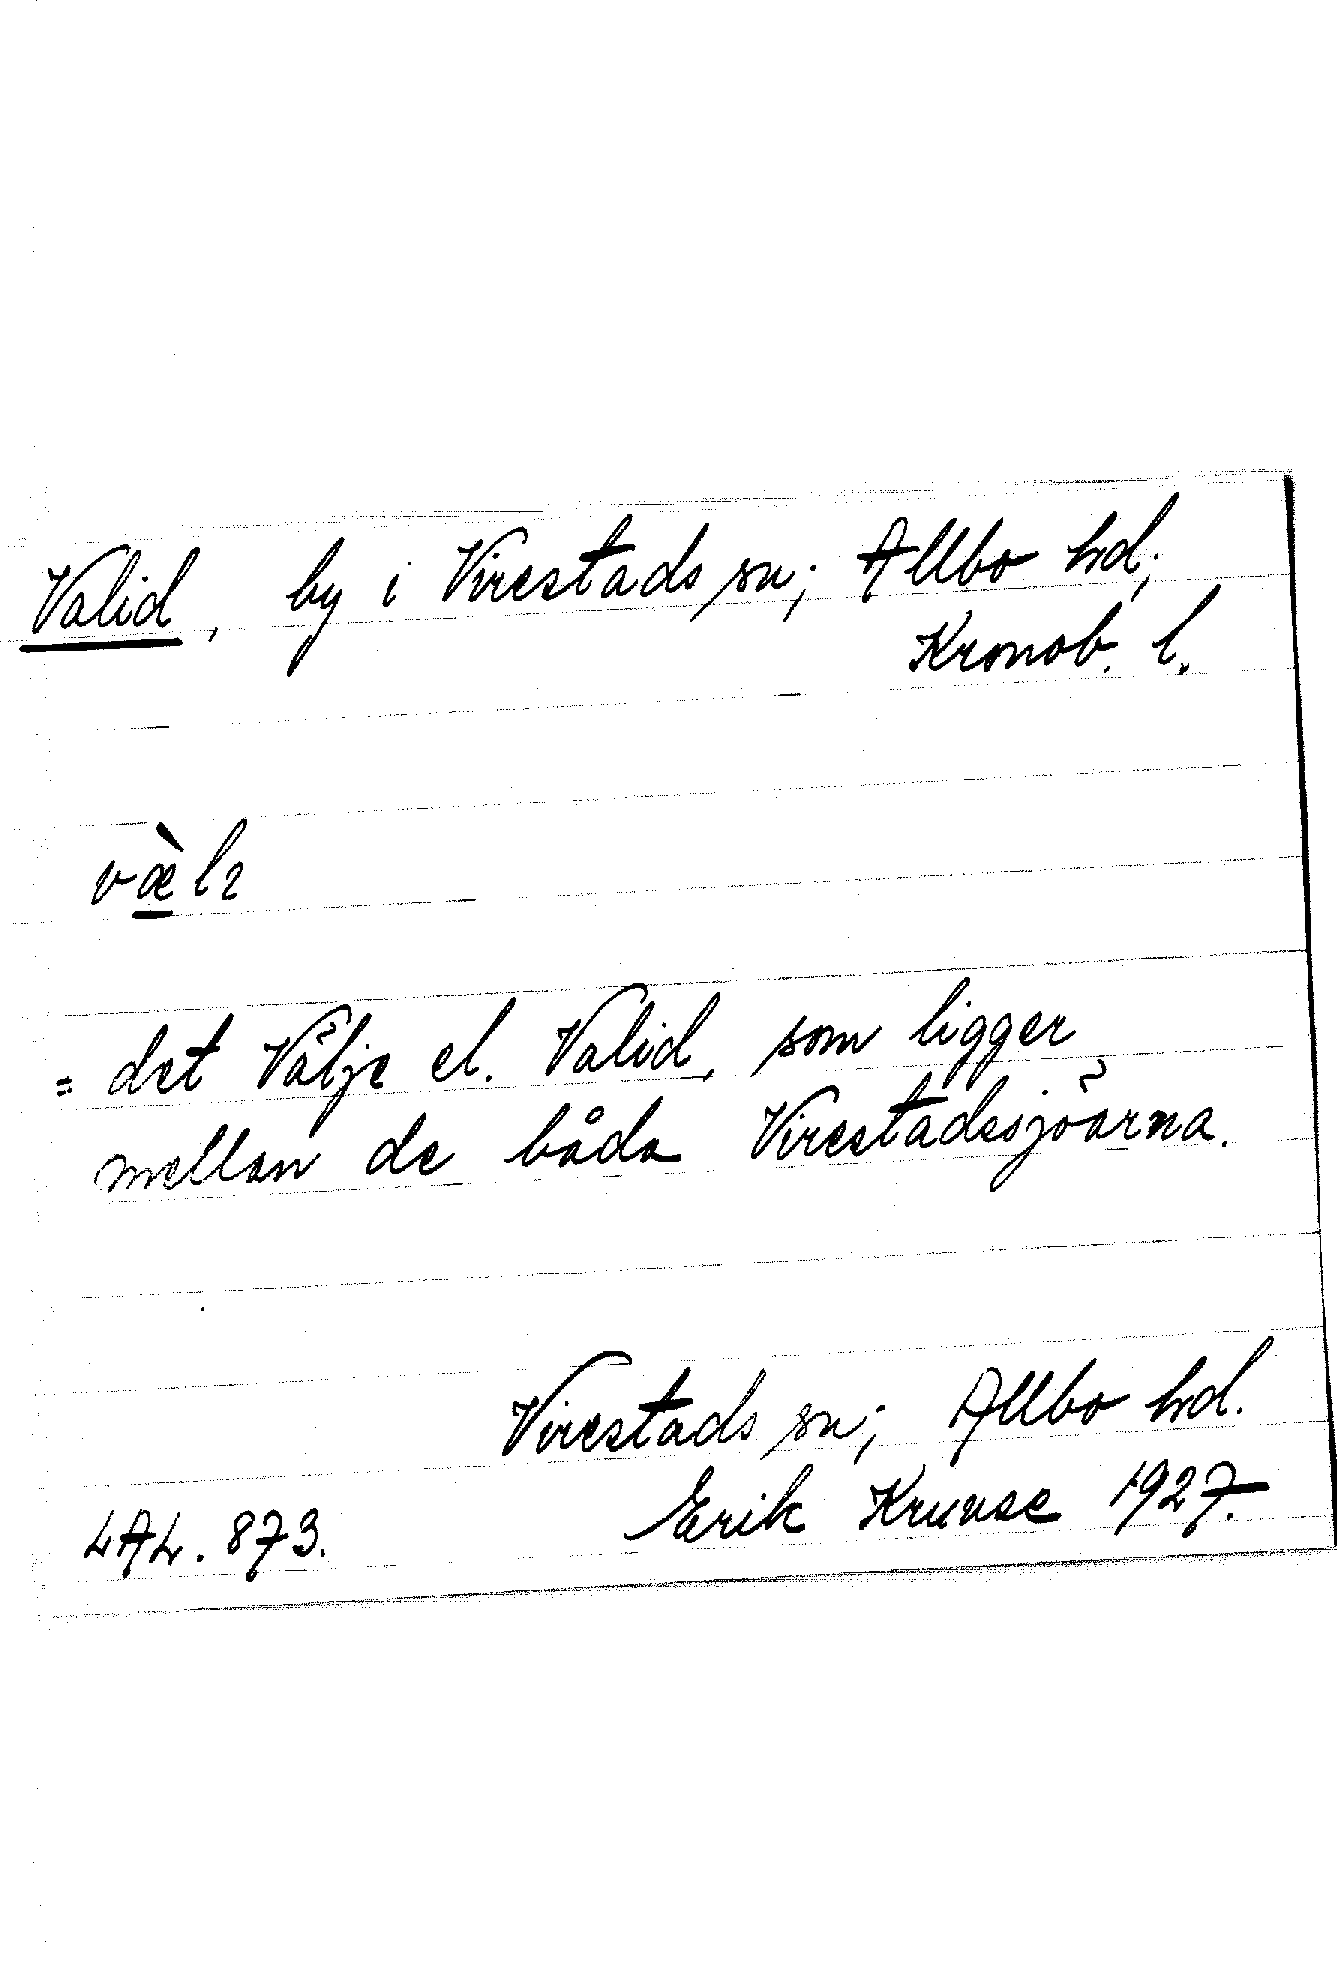 Valid, by i Virestads sn; Allbo hd;
Kronob. l.
væ̀lɿ
= det Välje el. Valid, som ligger
mellan de båda Virestadssjöarna.
Virestads sn; Allbo hd.
LAL. 873. Erik Kruuse 1927.